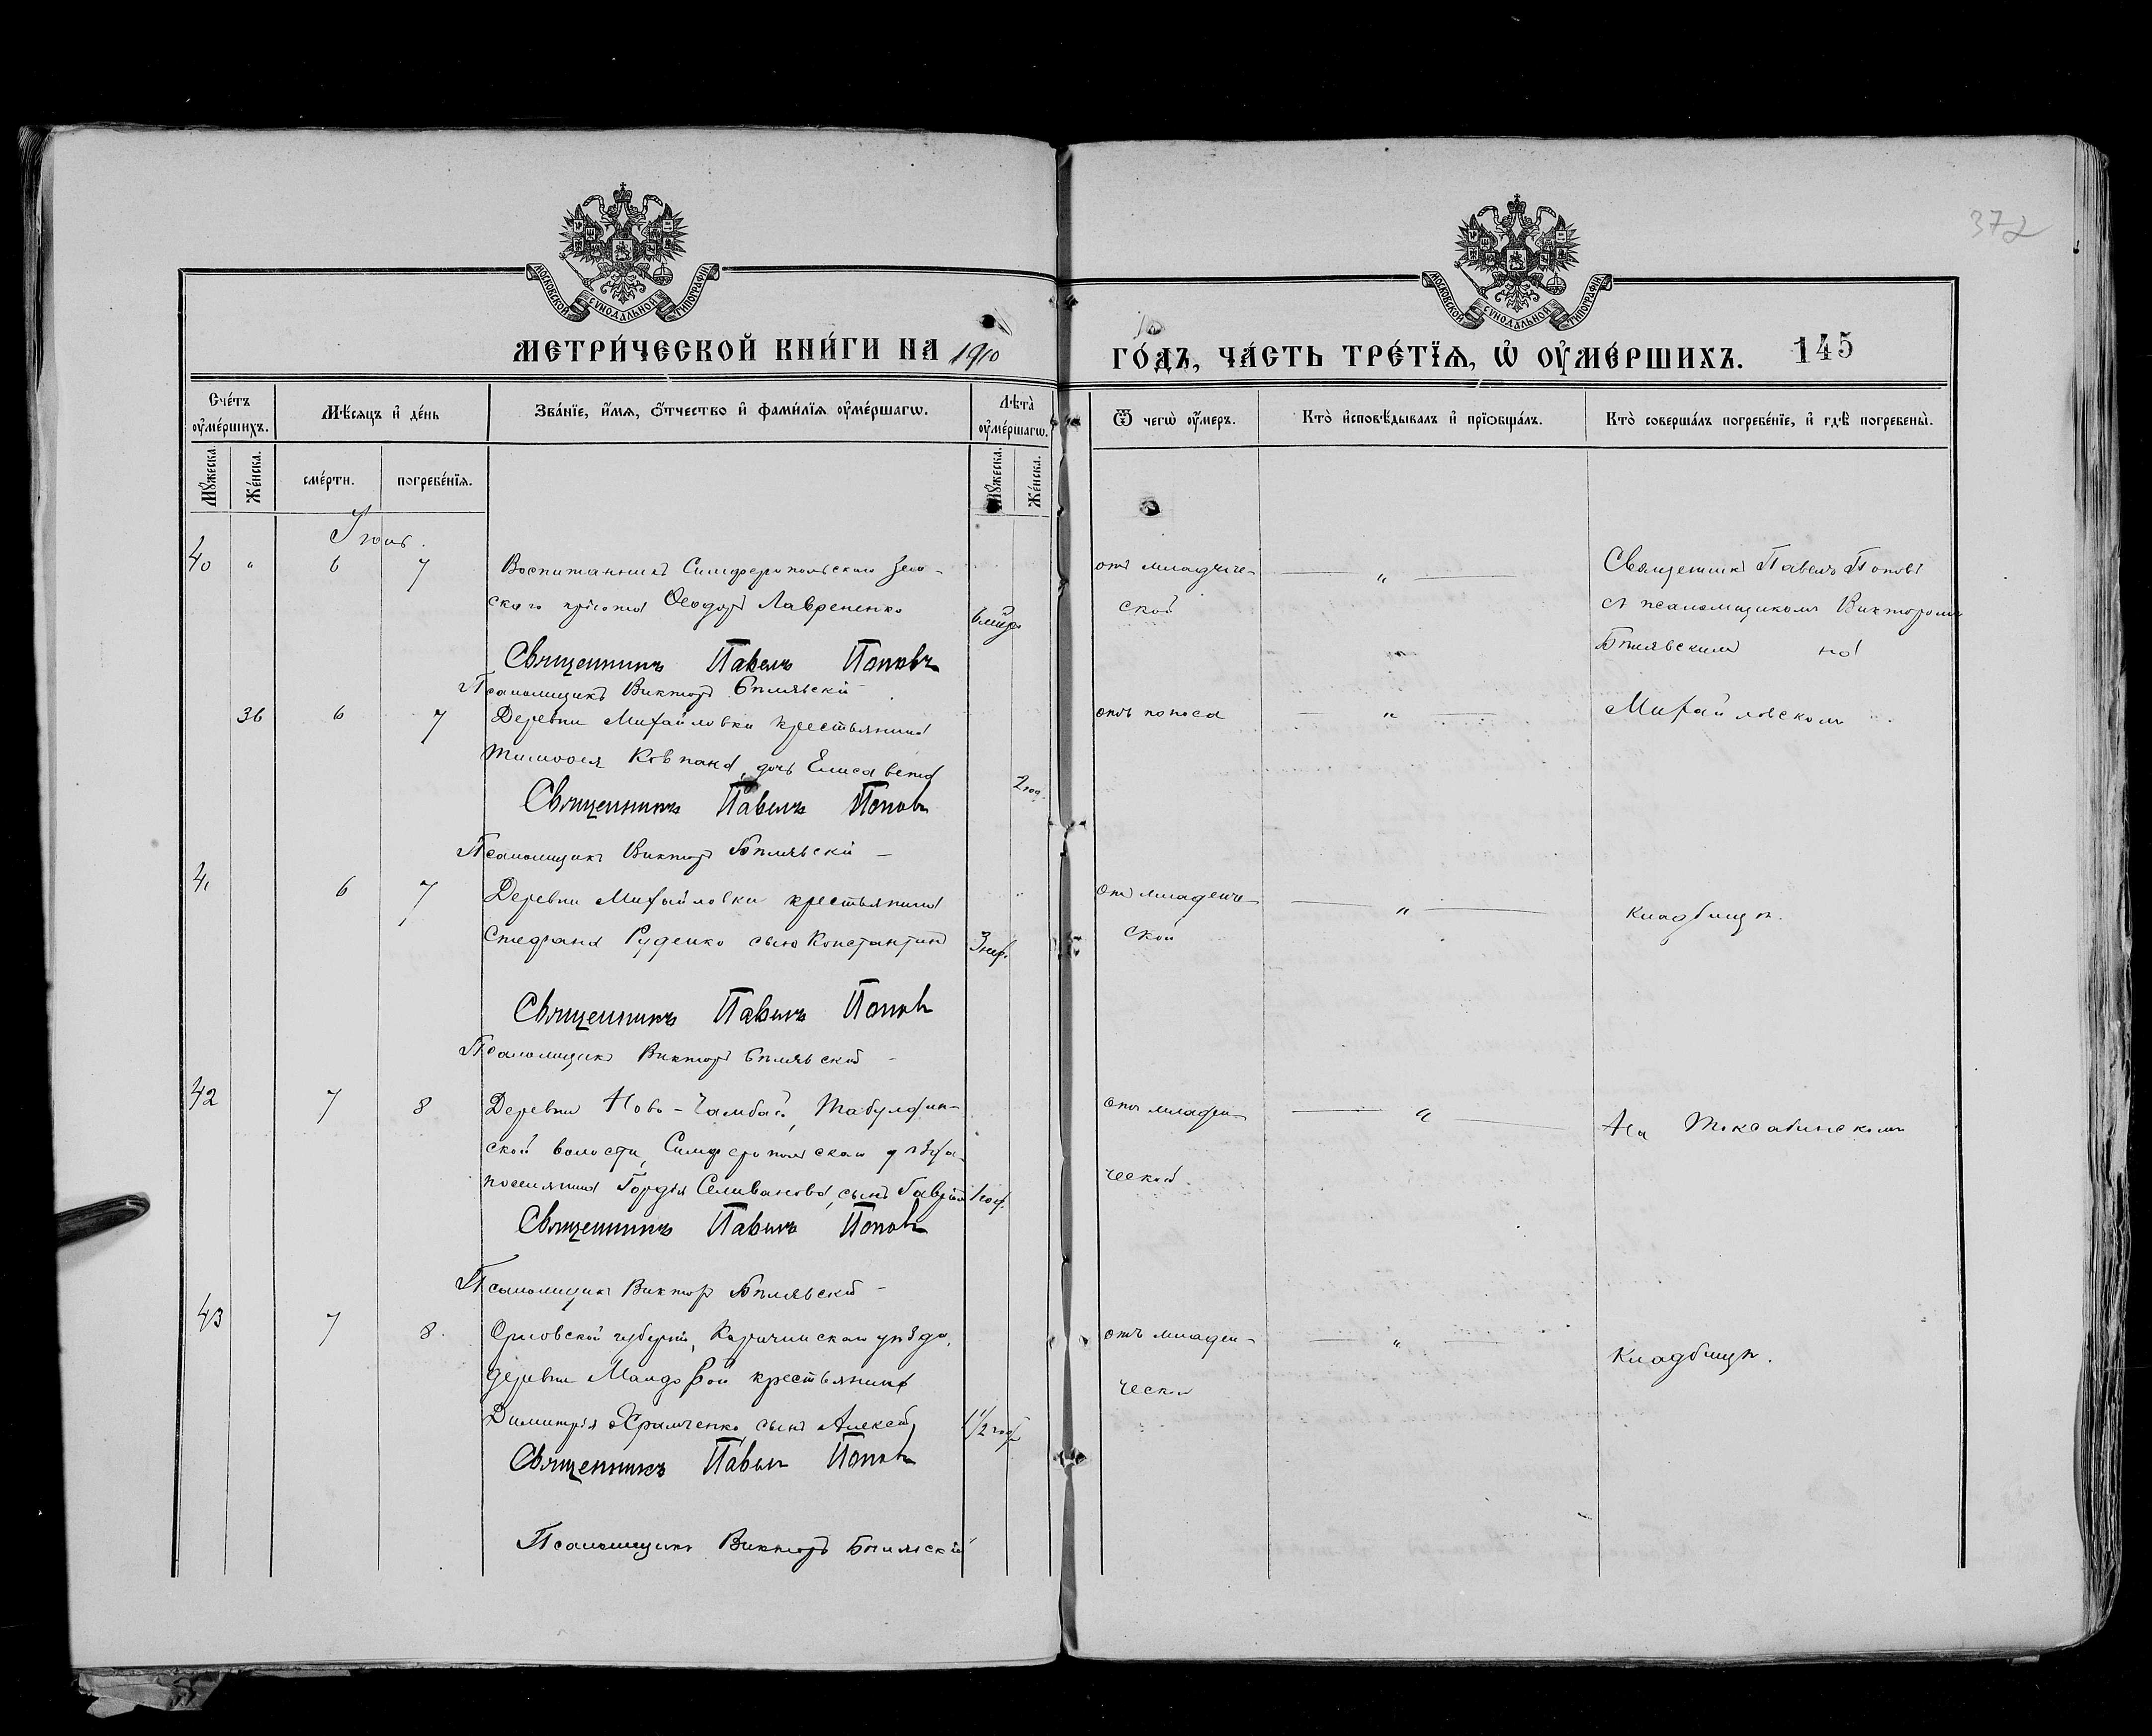 372
МОСКОВСКОЙ СѴНОДАЛЬНОЙ ТИПОГРАФІИ
МОСКОВСКОЙ СѴНОДАЛЬНОЙ ТИПОГРАФІИ
МЕТРИ́ЧЕСКОЙ КНИ́ГИ НА 1910 ГО́ДЪ, ЧА́СТЬ ТРЕ́ТЇѦ, Ѡ҆ ОУ҆МЕ́РШИХЪ. 145
Сче́тъ оу҆ме́ршихъ.
Мѣ́сяцъ и҆ де́нь
Зва́нїе, и҆́мѧ, ѻ҆́тчество и҆ фами́лїѧ оу҆ме́ршагѡ.
Лѣ̑та̀ оу҆ме́ршагѡ.
Ѿ чегѡ̀ оу҆́меръ.
Кто̀ и҆сповѣ́дывалъ и҆ прїѡбща́лъ.
Кто̀ соверша́лъ погребе́нїе, и҆ гдѣ̀ погребены̀.
Мꙋ́жеска. Же́нска. сме́рти. погребе́нїѧ. Мꙋ́жеска. Же́нска.
Іюнь.
40 " 6 7 Воспитанникъ Симферопольскаго Зем-
скаго пріюта Ѳеодоръ Лавриненко
Священникъ Павелъ Поповъ
Псаломщикъ Виктор Бѣлявскій
от младенче-
ской
"
Священникъ Павелъ Поповъ
съ псаломщикомъ Викторомъ
Бѣлявскимъ на
36 6 7 Деревни Михайловки крестьянина
Тимоѳея Ковпака, дочь Елисавета 2 год.
Священникъ Павелъ Поповъ
Псаломщикъ Виктор Бѣлявскій
отъ поноса
"
Михайловскомъ
41 6 7 Деревни Михайловки крестьянина
Стефана Руденко сынъ Константинъ 3 нед.
Священникъ Павелъ Поповъ
Псаломщикъ Виктор Бѣлявскій
от младенче-
ской
"
кладбищѣ.
42 7 8 Деревни Ново-Чамбай, Табулдин-
ской волости, Симферопольскаго уѣзда
поселянина Гордія Селиванова, сынъ Гавріилъ 1 год.
Священникъ Павелъ Поповъ
Псаломщикъ Виктор Бѣлявскій
отъ младен-
ческой
"
На Токсабинскомъ
43 7 8 Орловской губерніи, Карачинскаго уѣзда,
деревни крестьянина
Димитрія Храмченко, сынъ Алексѣй 1 1/2 год.
Священникъ Павелъ Поповъ
Псаломщикъ Викторъ Бѣлявскій
отъ младен-
ческой
"
Кладбищѣ.